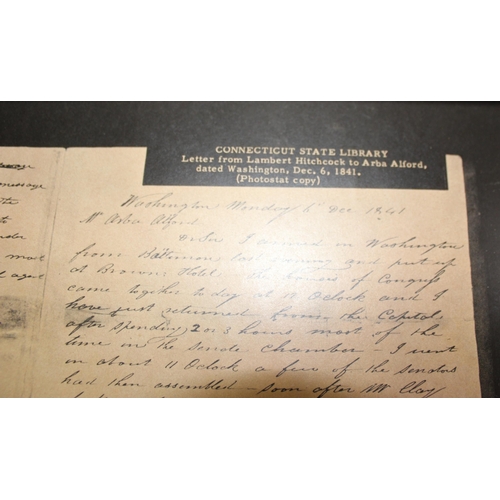 CONNECTICUT STATE LIBRARY
Letter from Lambert Hitchcock to Arba Alford,
dated Washington, Dec. 6, 1841.
(Photostat copy)
message
the
to
most
agent
Washington Monday 6 Dec 1841
Mr Arba Alford
Dr Sir I arrived in Washington
from Baltimore last evening and put up
at Browns Hotel. The houses of Congress
came together to day at 12 Oclock and I
have just returned from the Capitol
after spending 2 or 3 hours most of the
time in the Senate Chamber - I went
in about 11 Oclock a few of the Senators
had then assembled - soon after Mr Clay